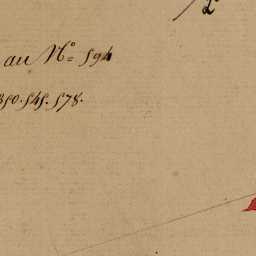 au N.º 594
350. 545. 578.